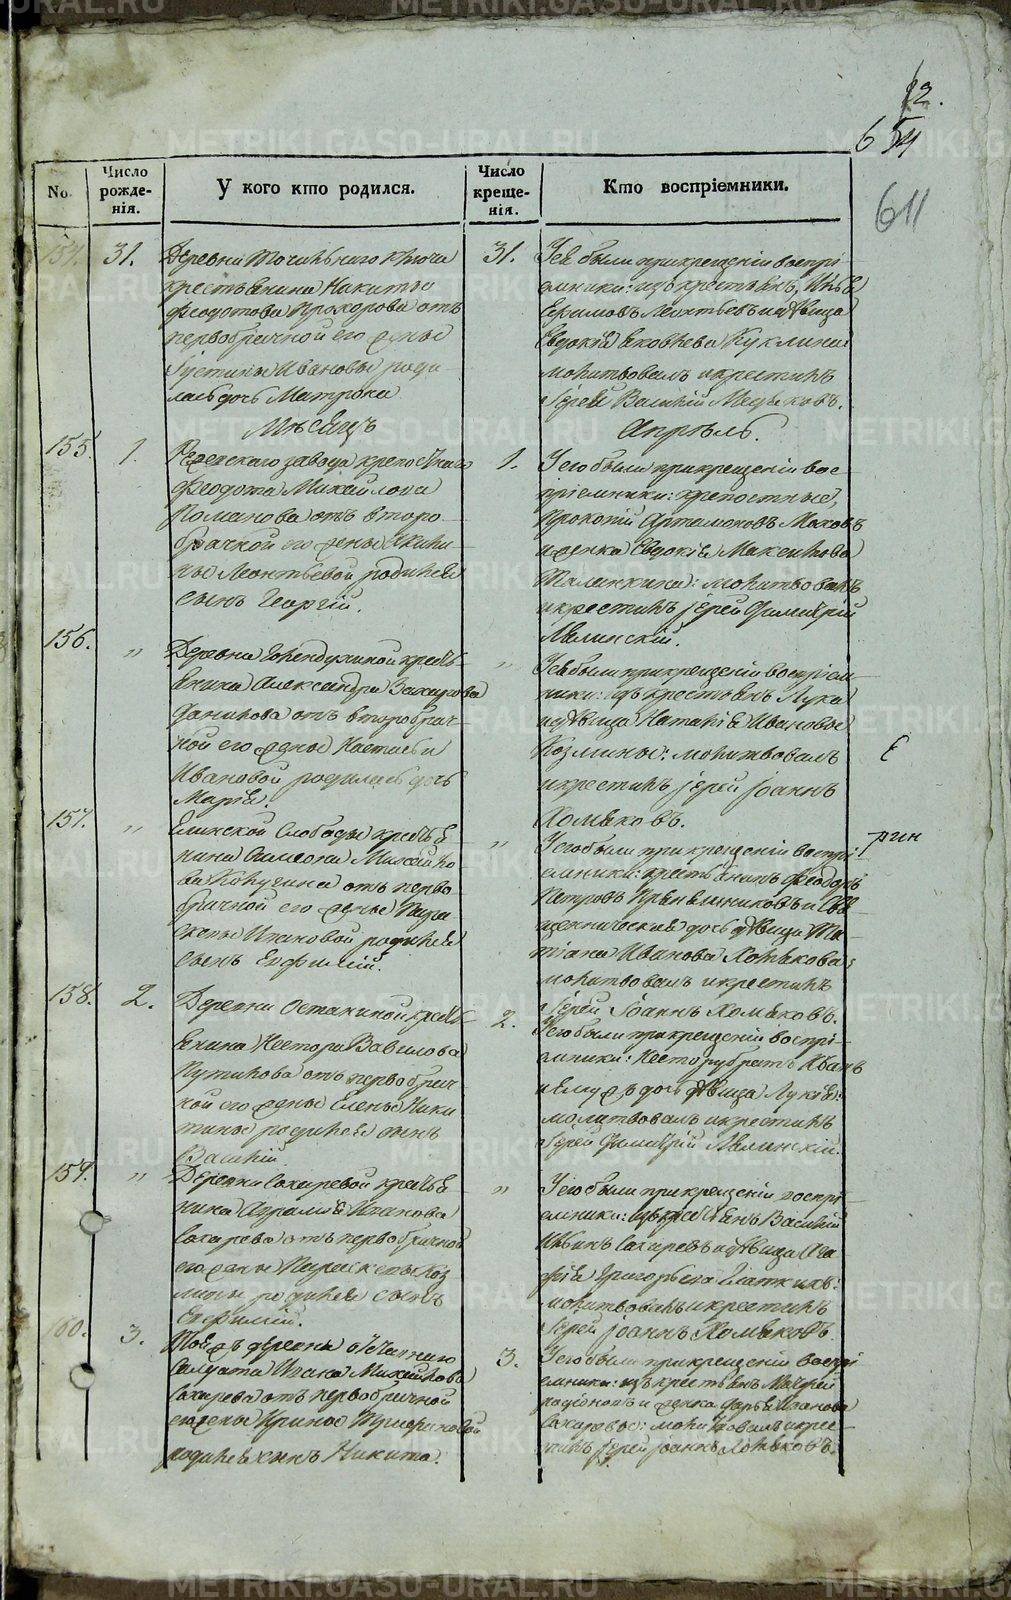 12.
654
611
No.
Число рожде-
нія.
У кого кто родился.
Число креще-
нія.
Кто воспріемники.
154.
31.
Деревни Точильнаго Ключа
крестьянина Никиты
Федотова Прохорова отъ
первобрачной его жены
Іустины Ивановы роди-
лась дочь Матрона
31.
Ея были при крещеніи воспрі
емники: изъ крестьянъ,
Екимовъ Леонтьевъ и дѣвица
Евдокія Яковлева Куклина:
молитвовалъ и крестилъ
Іерей Василій
Мѣсяцъ
Апрѣль.
155.
1.
Режевскаго завода крепостнаго
Федота Михайлова
Романова отъ второ-
брачной его жены Акили-
ны Леонтьевой родился
сынъ Георгій.
1.
У его были при крещеніи вос-
пріемники: крепостные,
Прокопій Артамоновъ
и женка Евдокія Максимова
молитвовалъ
и крестилъ іерей Димитрій
156.
"
Деревни крестья-
янина Александра Захарова
Данилова отъ второбрач-
ной его жены Настасьи
Ивановой родилась дочь
Марія.
"
У ея были при крещеніи воспріем-
ники: изъ крестьянъ Лука
и дѣвица Наталія Ивановы
Козмины: молитвовалъ
и крестилъ іерей Іоаннъ
Хомяковъ.
157.
"
Слободы крестья-
нина Симеона Михайло-
ва отъ перво-
брачной его жены Пара-
скевы Ивановой родился
сынъ Евфимій.
"
У его были при крещеніи воспрі-
емники: крестьянинъ Феодоръ
Петровъ и Свя-
щенническая дочь дѣвица Та-
тіана Иванова Хомякова;
молитвовалъ и крестилъ
Іерей Іоаннъ Хомяковъ.
158.
2.
Деревни Останиной кресть-
янина Нестора Вавилова
Путилова отъ первобрач-
ной его жены Елены Ники-
тины родился сынъ
Василій
2.
У его были при крещеніи воспрі-
емники: Нестору братъ Иванъ
и Ему жъ дочь дѣвица Лукія:
молитвовалъ и крестилъ
Іерей Димитрій
159.
"
Деревни Сохаревой крестья-
нина Аврамія Иванова
Сохарева отъ первобрачной
его жены Параскевы Коз
мины родился сынъ
Евфимій.
"
У его были при крещеніи воспрі-
емники: изъ крестьянъ Василій
Сохаревъ и дѣвица Ага-
фія Григорьева
молитвовалъ и крестилъ
Іерей Іоаннъ Хомяковъ.
160.
3.
Тоя жъ деревни
Солдата Ивана Михайлова
Сохарева отъ первобрачной
его жены Ирины Трифоновой
родился сынъ Никита.
3.
У его были при крещеніи воспрі
емники: изъ крестьянъ
и женка Дарья Иванова
Сохаревы: молитвовалъ и крес-
тилъ Іерей Іоаннъ Хомяковъ.
METRIKI.GASO-URAL.RU